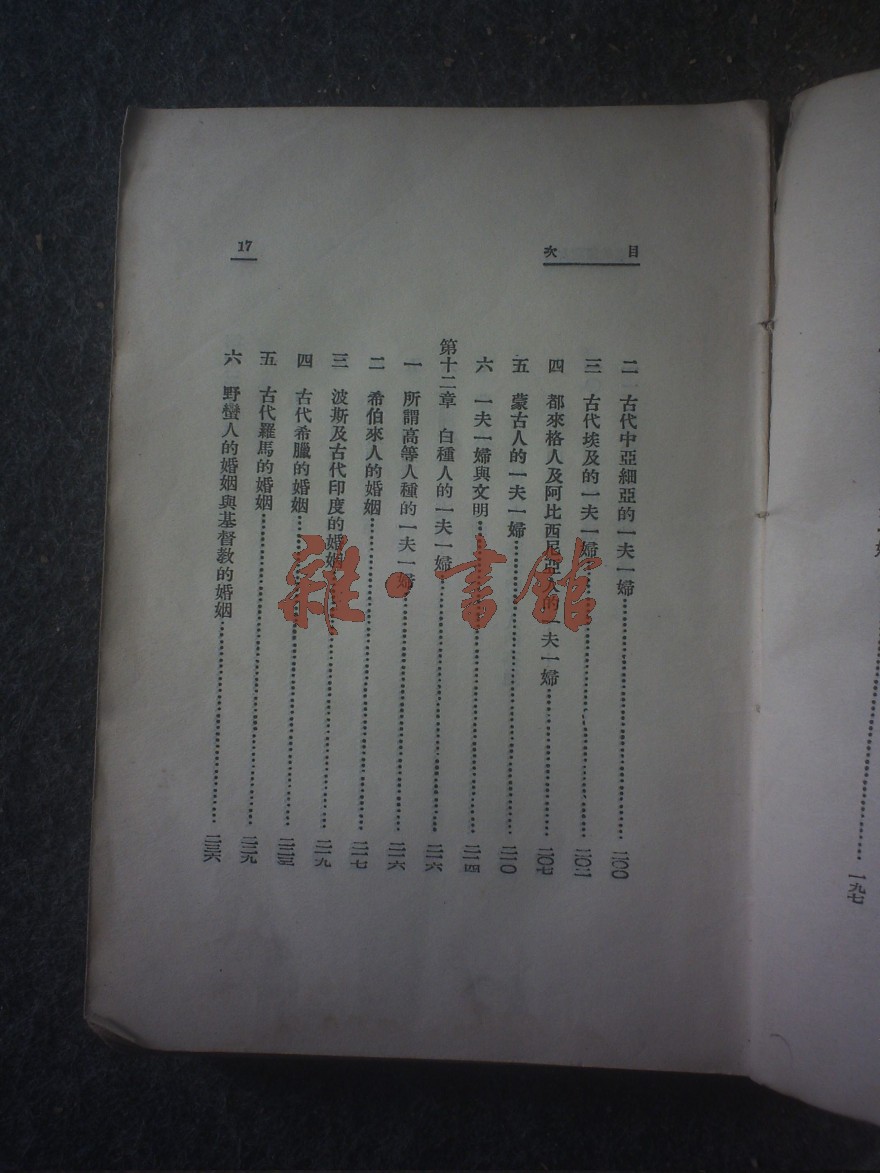 目次
17
二 古代中亞細亞的一夫一婦……二〇〇
三 古代埃及的一夫一婦……二〇二
四 都來格人及阿比西尼亞人的一夫一婦……二〇七
五 蒙古人的一夫一婦……二一〇
六 一夫一婦與文明……二一四
第十二章 白種人的一夫一婦……二一六
一 所謂高等人種的一夫一婦……二一六
二 希伯來人的婚姻……二一七
三 波斯及古代印度的婚姻……二一九
四 古代希臘的婚姻……二二三
五 古代羅馬的婚姻……二二九
六 野蠻人的婚姻與基督教的婚姻……二三六
雜·書館
一九七